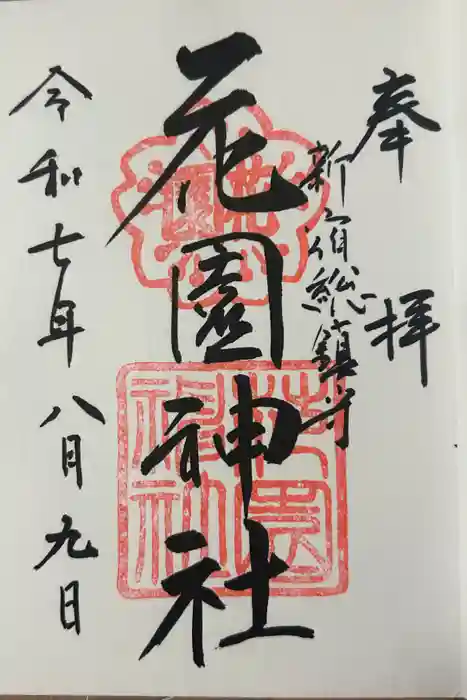 奉拝
新宿総鎮守
花園神社
令和七年八月九日